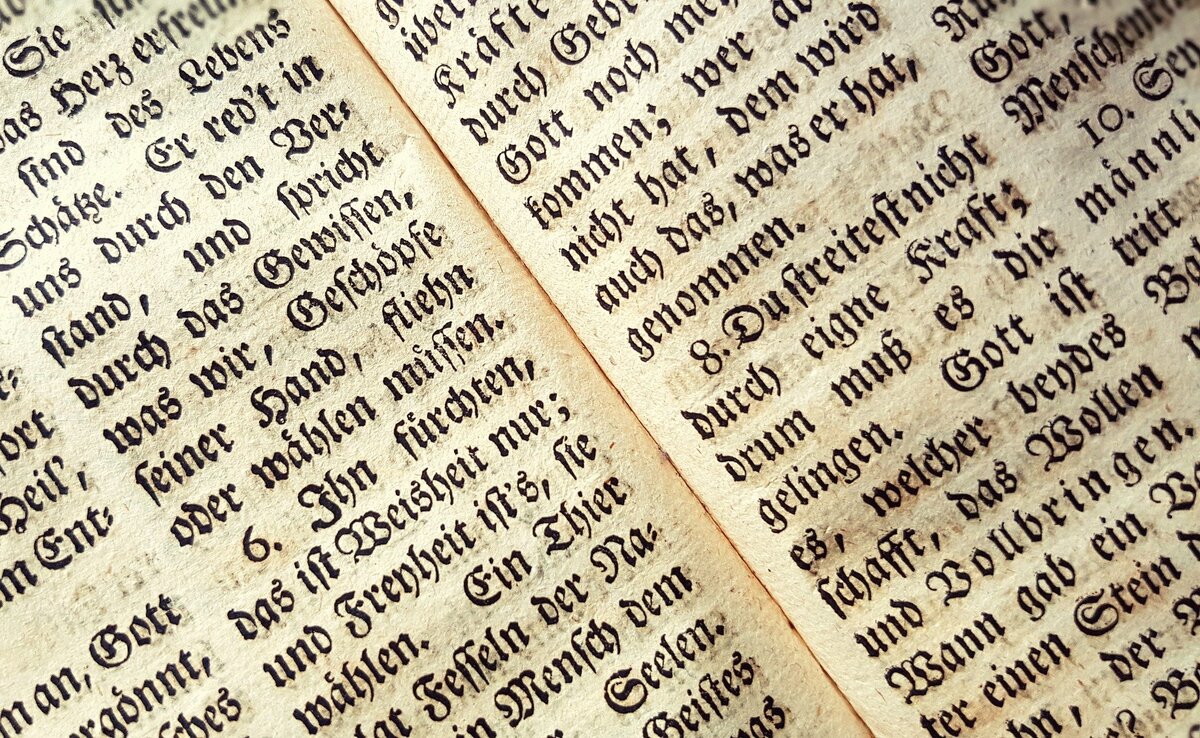 fort
Heil',
Ent⸗
an, Gott
Sie
das Herz
sind des Lebens
Schätze. Er red't in
uns durch den Ver⸗
stand, und spricht
durch das Gewissen,
was wir, Geschöpfe
seiner Hand, fliehn
oder wählen müssen.
6. Ihn fürchten,
das ist Weisheit nur;
und Freyheit ist's, sie
wählen. Ein Thier
Fesseln der Na⸗
Mensch dem
Seelen.
Geistes
Kräfte
durch
Gott noch
kommen; wer
nicht hat, dem wird
auch das, was er hat,
genommen.
8. Du streitest nicht
durch eigne Kraft;
drum muß es dir
gelingen. Gott ist
es, welcher beydes
schafft, das Wollen
und Vollbringen.
Wann gab ein
einen Stein
der
Gott,
10.
tritt